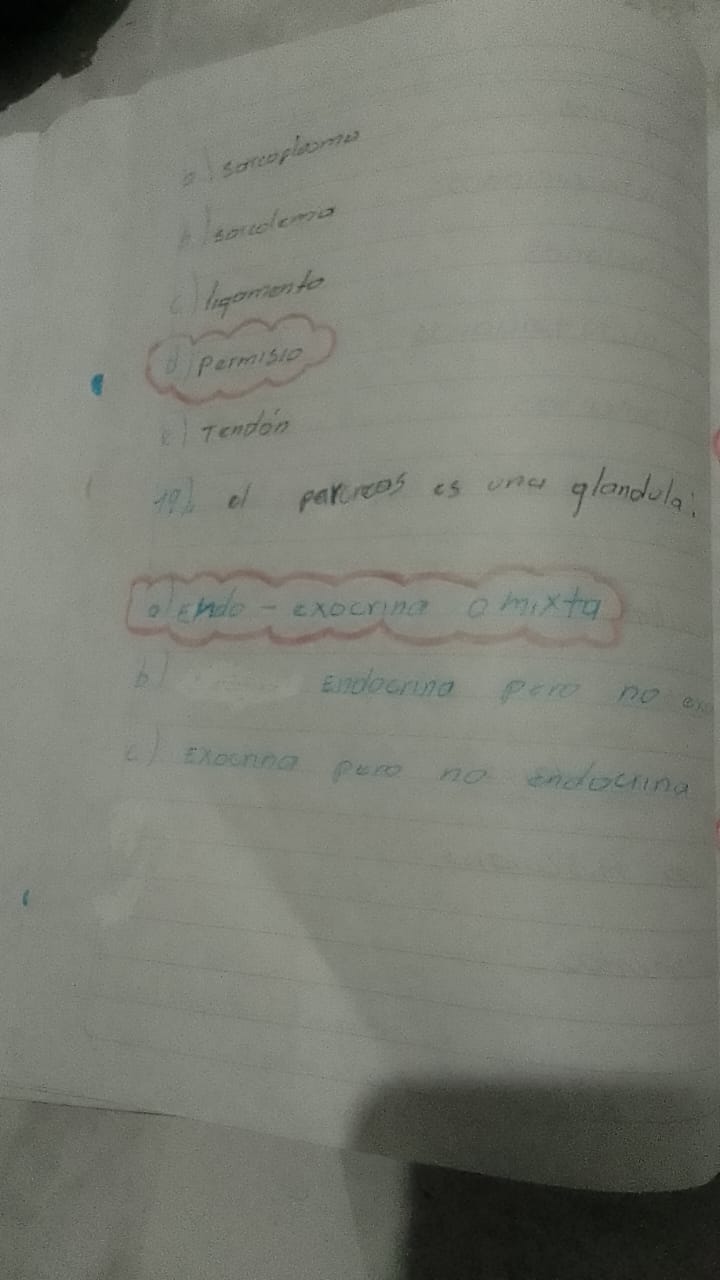 a) sarcoplasma
b) sarcolema
c) ligamento
d) Permisio
e) Tendón
19) el parcreas es una glandula:
a) Endo - exocrina o mixta
b) Endocrina pero no
c) Exocrina pero no endocrina